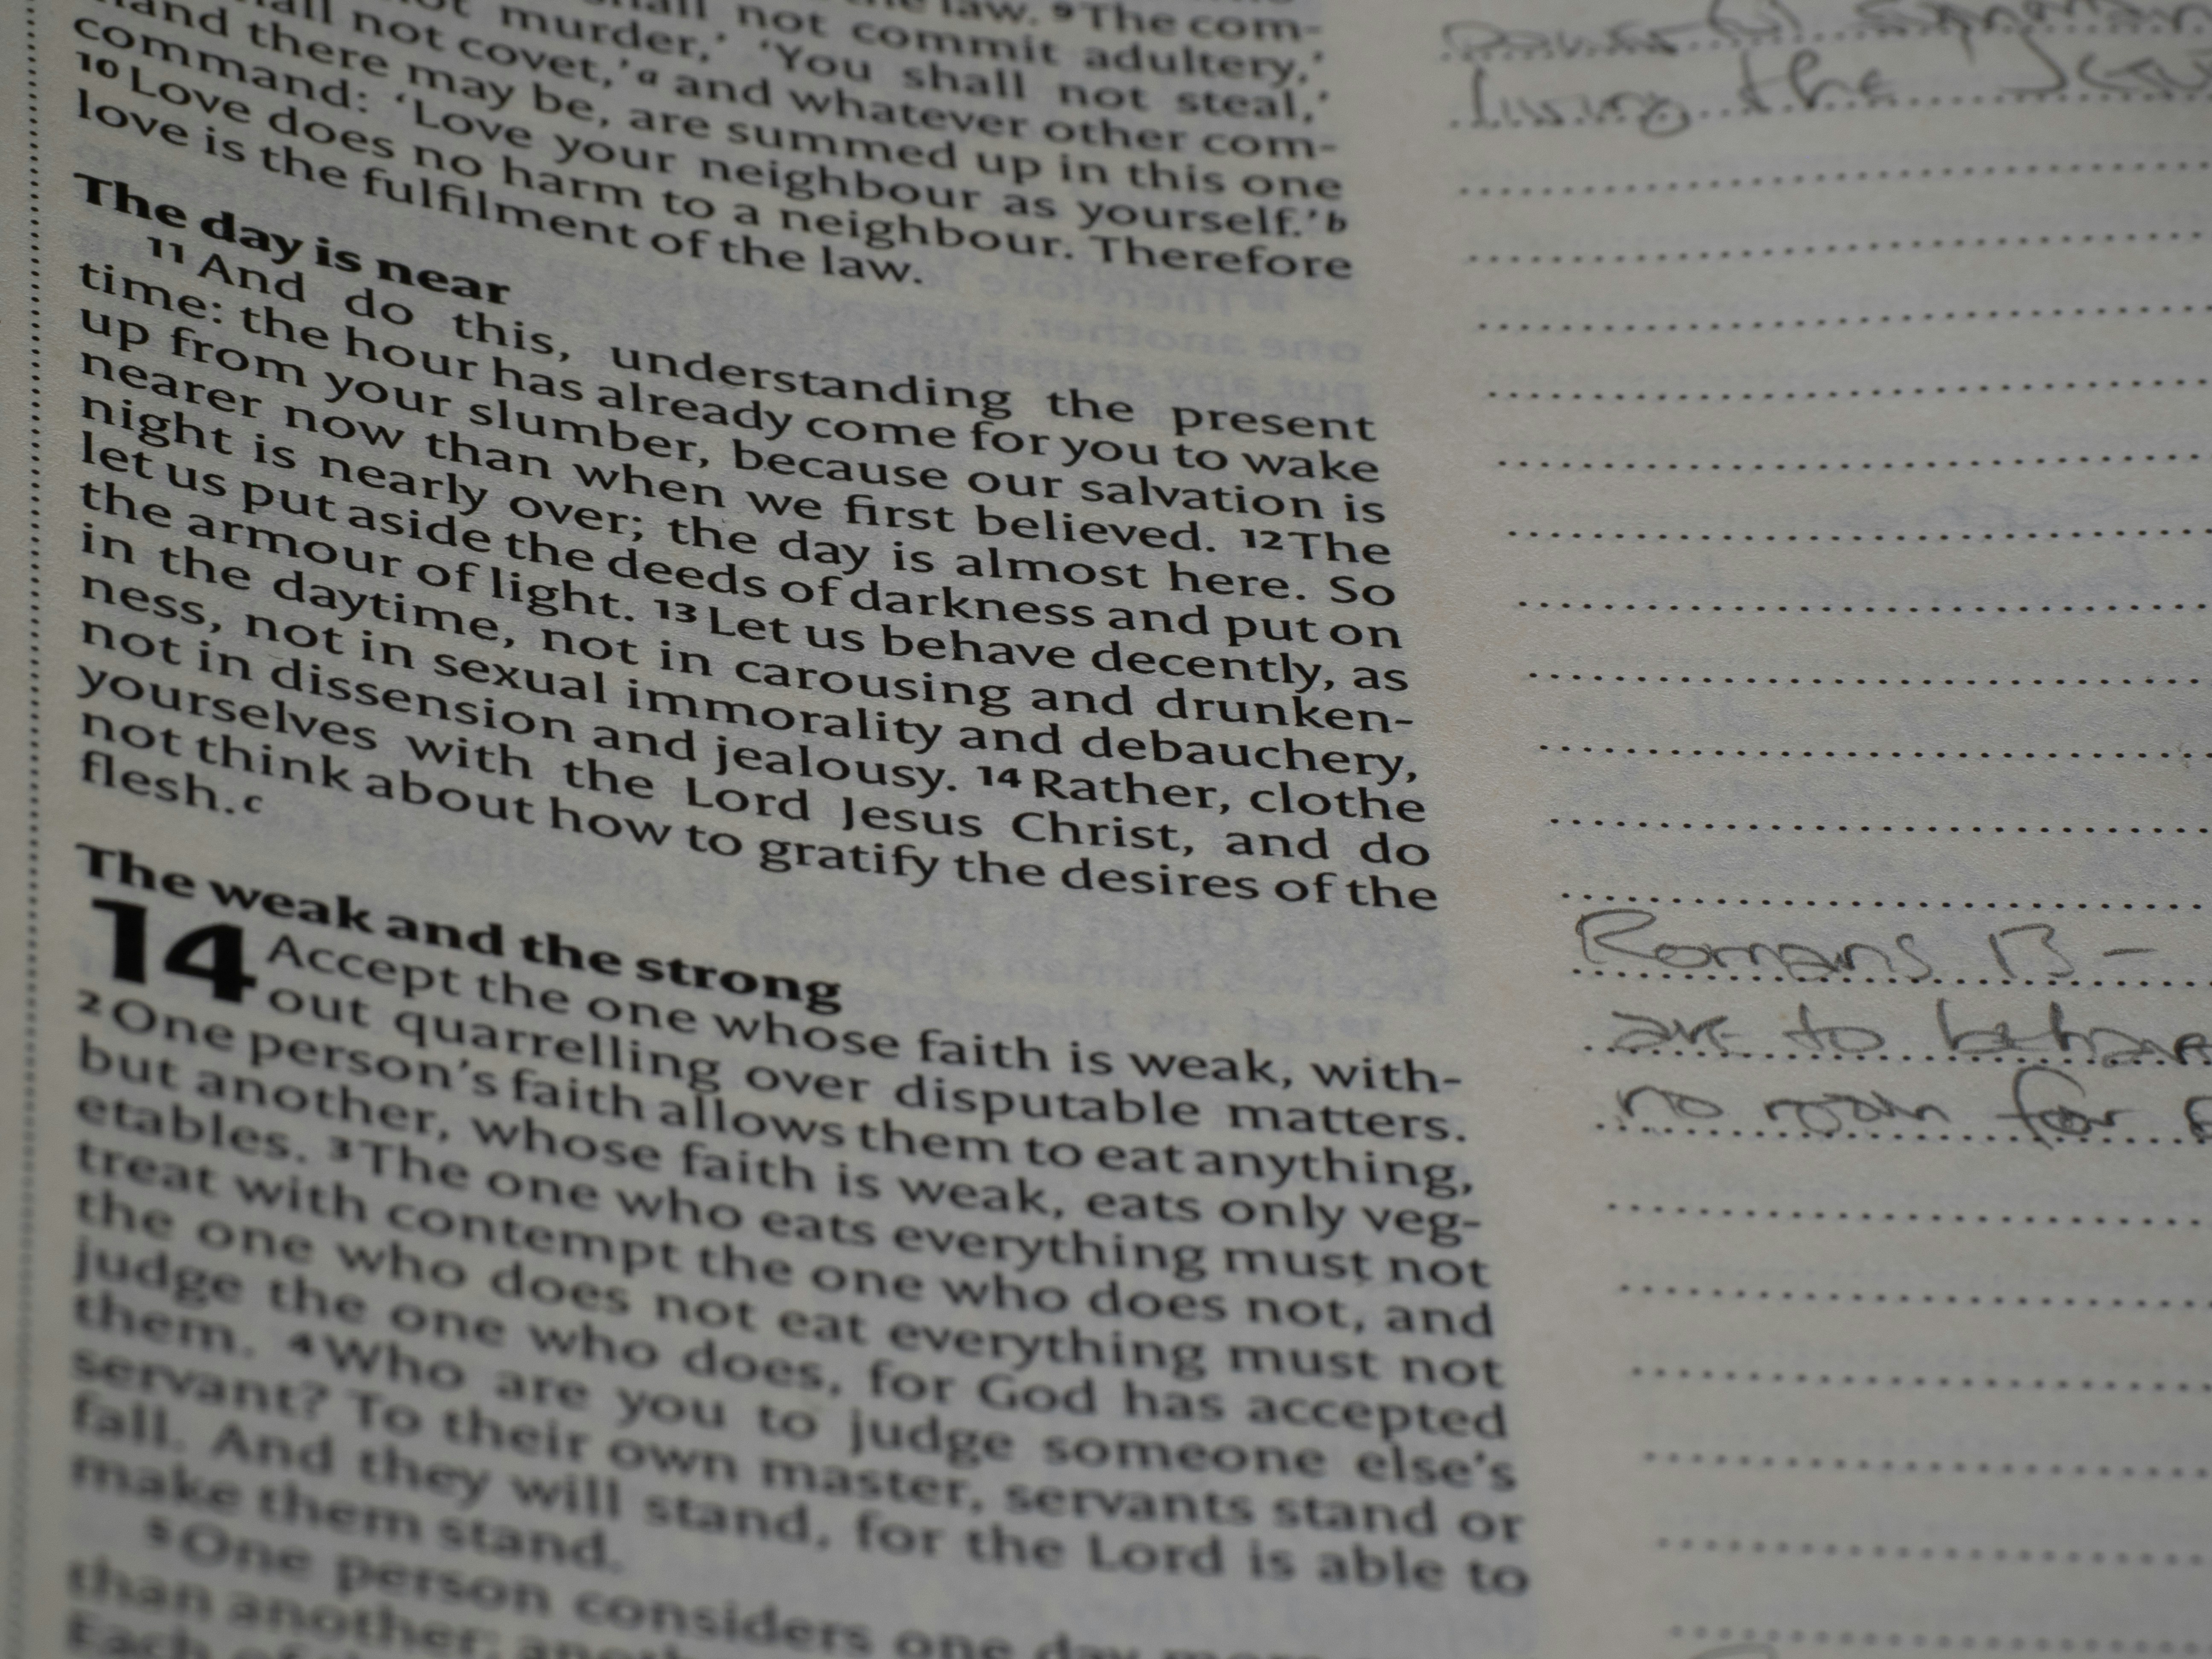 the law. 9 The com-
not murder,' 'You shall not commit adultery,'
not covet,' a and whatever other com-
mand there may be, are summed up in this one
command: 'Love your neighbour as yourself.' b
10 Love does no harm to a neighbour. Therefore
love is the fulfilment of the law.
The day is near
11 And do this, understanding the present
time: the hour has already come for you to wake
up from your slumber, because our salvation is
nearer now than when we first believed. 12 The
night is nearly over; the day is almost here. So
let us put aside the deeds of darkness and put on
the armour of light. 13 Let us behave decently, as
in the daytime, not in carousing and drunken-
ness, not in sexual immorality and debauchery,
not in dissension and jealousy. 14 Rather, clothe
yourselves with the Lord Jesus Christ, and do
not think about how to gratify the desires of the
flesh. c
The weak and the strong
14 Accept the one whose faith is weak, with-
out quarrelling over disputable matters.
2 One person's faith allows them to eat anything,
but another, whose faith is weak, eats only veg-
etables. 3 The one who eats everything must not
treat with contempt the one who does not, and
the one who does not eat everything must not
judge the one who does, for God has accepted
them. 4 Who are you to judge someone else's
servant? To their own master, servants stand or
fall. And they will stand, for the Lord is able to
make them stand.
5 One person considers one day more
than another;
Each of
living the
Romans 13 -
are to behave
no room for